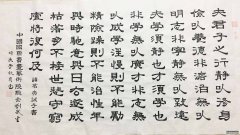 夫君子之行靜以修身
儉以養德非澹泊無以
明志非寧靜無以致遠
夫學須靜也才須學也
非學無以廣才非志無
以成學淫慢則不能勵
精險躁則不能治性年
與時馳意與日去遂成
枯落多不接世悲守窮
廬將復何及
諸葛亮誡子書
中國國際書畫藝術院院士